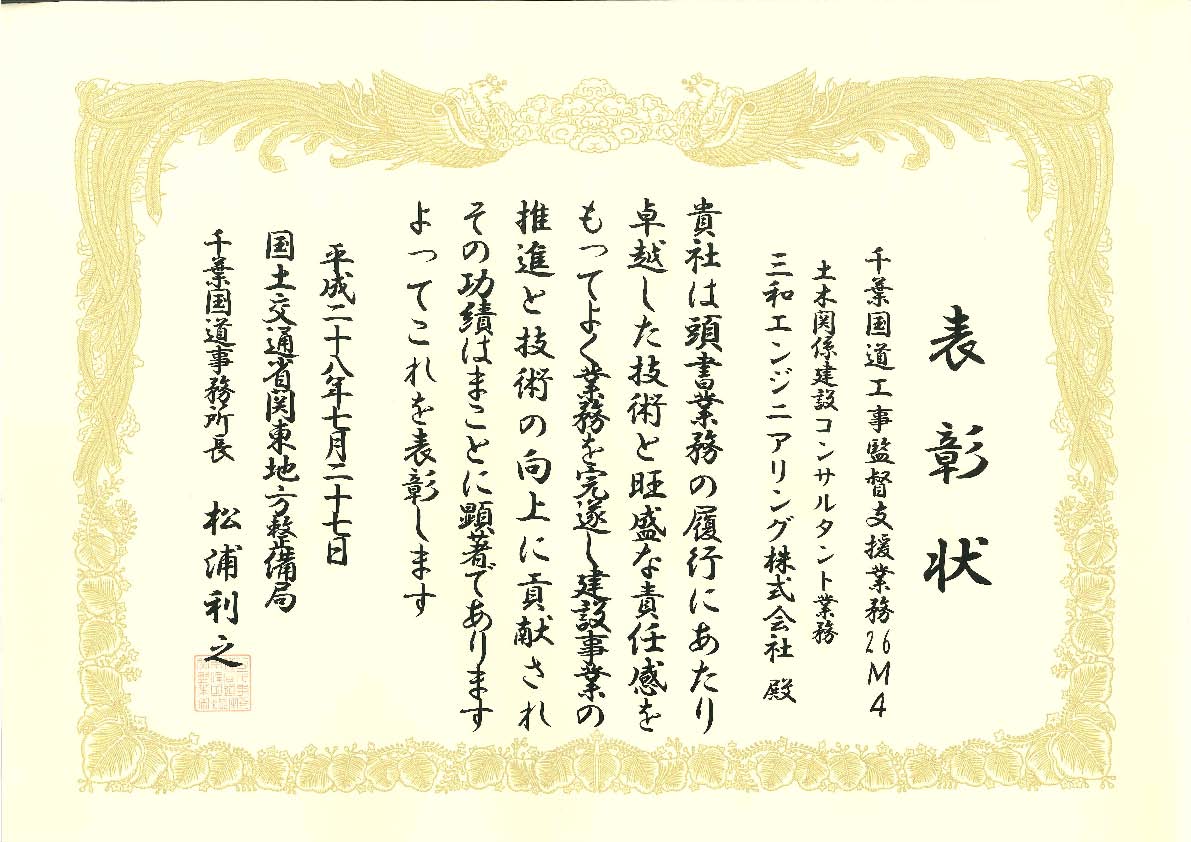 表彰状
千葉国道工事監督支援業務26M4
土木関係建設コンサルタント業務
三和エンジニアリング株式会社 殿
貴社は頭書業務の履行にあたり
卓越した技術と旺盛な責任感を
もってよく業務を完遂し建設事業の
推進と技術の向上に貢献され
その功績はまことに顕著であります
よってこれを表彰します
平成二十八年七月二十七日
国土交通省関東地方整備局
千葉国道事務所長 松浦利之